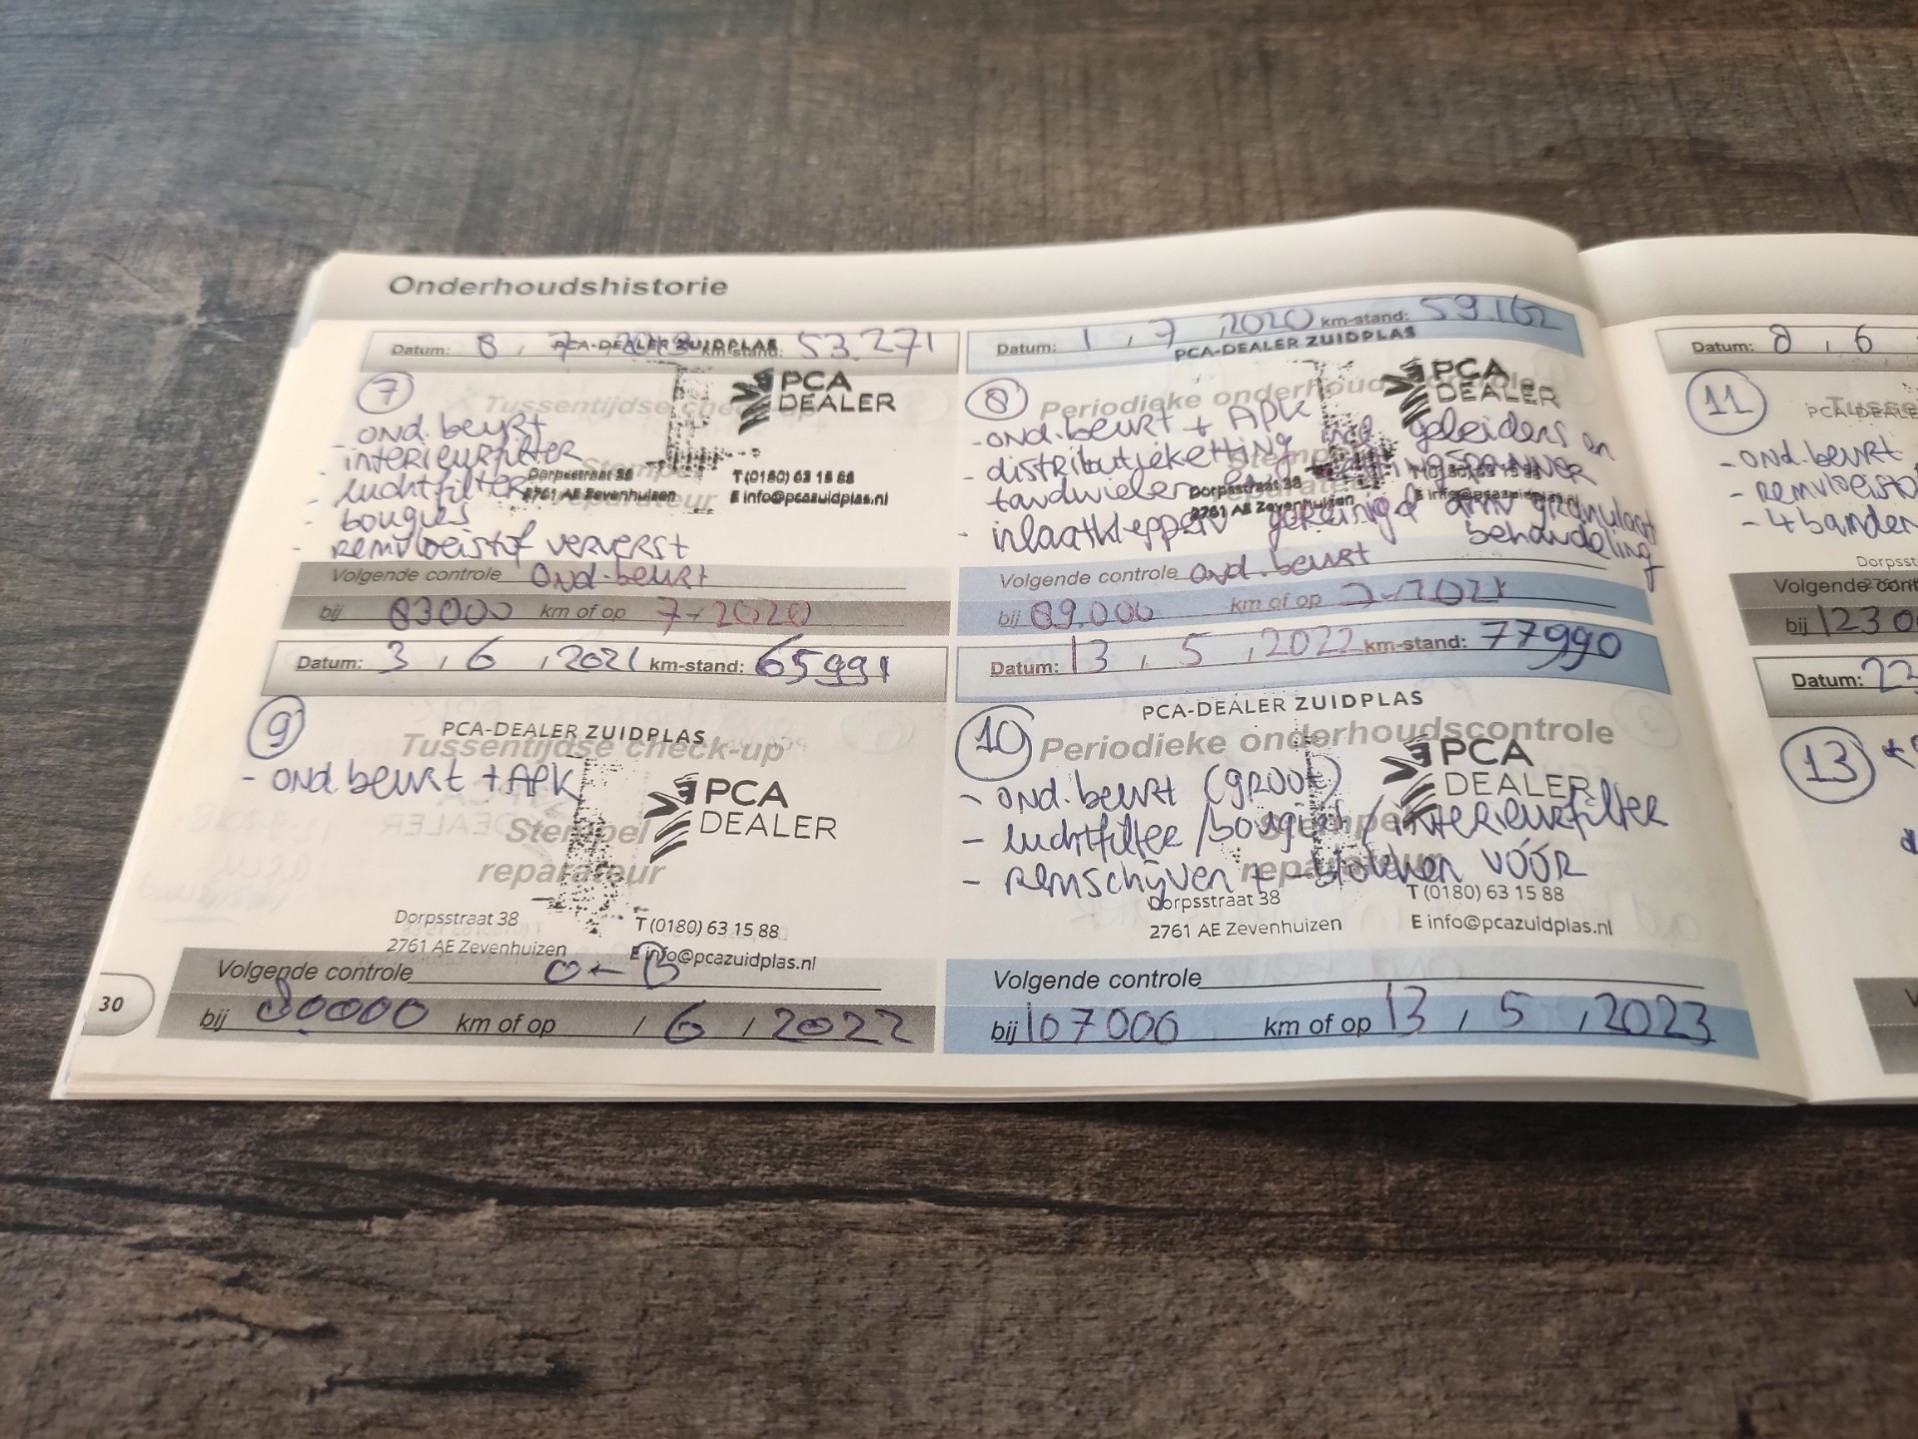 Onderhoudshistorie
Datum: 8 , 7 , km-stand: 53.271
PCA-DEALER ZUIDPLAS
7
PCA
DEALER
Tussentijdse check-up
- ond. beurt
- interieurfilter
- luchtfilter
- bougies
- remvloeistof ververst
Stempel
reparateur
Dorpsstraat 38
2761 AE Zevenhuizen
T (0180) 63 15 88
E info@pcazuidplas.nl
Volgende controle Ond. beurt
bij 83000 km of op 7-2020
Datum: 1 , 7 , 2020 km-stand: 59.162
PCA-DEALER ZUIDPLAS
8
PCA
DEALER
Periodieke onderhoudscontrole
- ond. beurt + APK
- distributieketting incl geleiders en
tandwielen en kettingspanner
- inlaatkleppen gereinigd dmv granulaat
behandeling
Stempel
reparateur
Dorpsstraat 38
2761 AE Zevenhuizen
E info@pcazuidplas.nl
Volgende controle ond. beurt
bij 89.000 km of op 7-2021
Datum: 3 , 6 , 2021 km-stand: 65991
9
PCA-DEALER ZUIDPLAS
Tussentijdse check-up
- ond. beurt + APK
PCA
DEALER
Stempel
reparateur
Dorpsstraat 38
2761 AE Zevenhuizen
T (0180) 63 15 88
E info@pcazuidplas.nl
Volgende controle O ← B
bij 80000 km of op / 6 , 2022
Datum: 13 , 5 , 2022 km-stand: 77990
PCA-DEALER ZUIDPLAS
10
Periodieke onderhoudscontrole
PCA
DEALER
- ond. beurt (groot)
- luchtfilter / bougies / interieurfilter
- remschijven + -blokken VÓÓR
Stempel
reparateur
Dorpsstraat 38
2761 AE Zevenhuizen
T (0180) 63 15 88
E info@pcazuidplas.nl
Volgende controle
bij 107000 km of op 13 , 5 , 2023
30
Datum: 8 , 6
11
PCA-DEALE
- ond. beurt
- remvloeisto
- 4 banden
Dorpsst
Volgende cont
bij 1230
Datum: 23
13
V